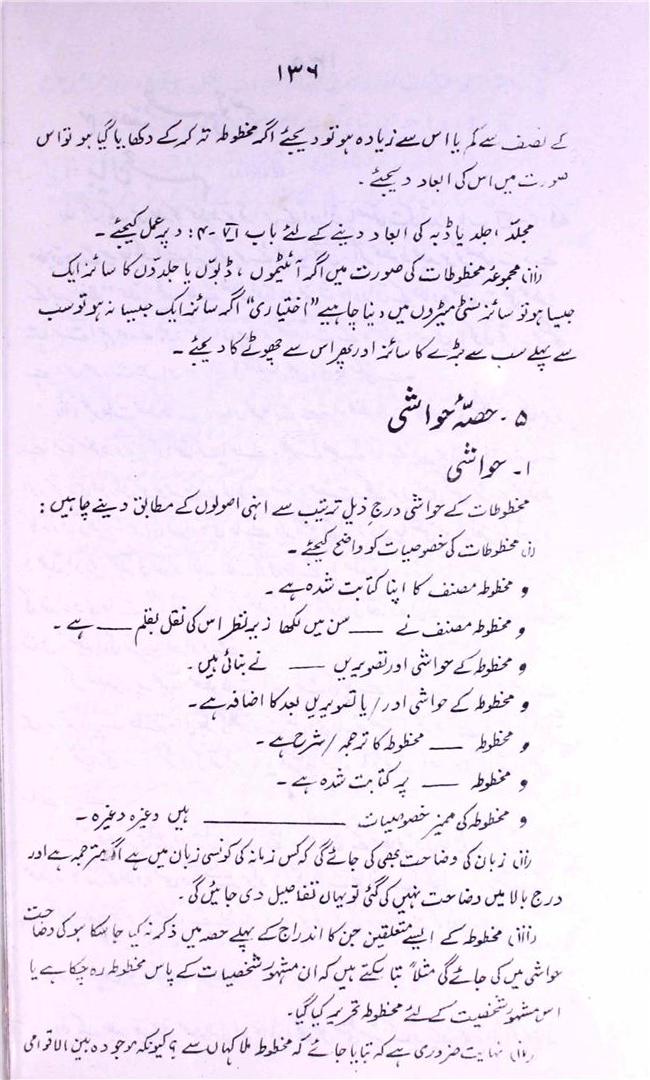 ۱۳۶
کے نصف سے کم یا اس سے زیادہ ہو تو دیجئے اگر مخطوطہ تہ کر کے دکھایا گیا ہو تو اس
صورت میں اس کی ابعاد دیجئے ۔
مجلد، جلد یا ڈبہ کی ابعاد دینے کے لئے باب ۴: د پر عمل کیجئے ۔
(ii) مجموعۂ مخطوطات کی صورت میں اگر آئٹموں ، ڈبوں یا جلدوں کا سائز ایک
جیسا ہو تو سائز سنٹی میٹروں میں دینا چاہیے “اختیاری” اگر سائز ایک جیسا نہ ہو تو سب
سے پہلے سب سے بڑے کا سائز اور پھر اس سے چھوٹے کا دیجئے ۔
۵ ۔ حصّہ حواشی
۱۔ حواشی
مخطوطات کے حواشی درج ذیل ترتیب سے انہی اصولوں کے مطابق دینے چاہیں :
(i) مخطوطات کی خصوصیات کو واضح کیجئے ۔
و مخطوطہ مصنف کا اپنا کتابت شدہ ہے ۔
و مخطوطہ مصنف نے ـــــ سن میں لکھا زیر نظر اس کی نقل بقلم ـــــ ہے ۔
و مخطوطہ کے حواشی اور تصویریں ـــــ نے بنائی ہیں ۔
و مخطوطہ کے حواشی اور / یا تصویریں بعد کا اضافہ ہے ۔
و مخطوطہ ـــــ مخطوطہ کا ترجمہ / شرح ہے ۔
و مخطوطہ ـــــ پر کتابت شدہ ہے ۔
و مخطوطہ کی ممیز خصوصیات ـــــــــــــــ ہیں وغیرہ وغیرہ ۔
(ii) زبان کی وضاحت بھی کی جائے گی کہ کس زمانہ کی کونسی زبان میں ہے اگر مترجمہ ہے اور
درج بالا میں وضاحت نہیں کی گئی تو یہاں تفاصیل دی جائیں گی ۔
(iii) مخطوطہ کے ایسے متعلقین جن کا اندراج کے پہلے حصہ میں ذکر نہ کیا جا سکا ہو کی وضاحت
حواشی میں کی جائے گی مثلاً بتا سکتے ہیں کہ ان مشہور شخصیات کے پاس مخطوطہ رہ چکا ہے یا
اس مشہور شخصیت کے لئے مخطوطہ تحریر کیا گیا ۔
نہایت ضروری ہے کہ بتایا جائے کہ مخطوطہ ملا کہاں سے ؟ کیونکہ موجودہ بین الاقوامی